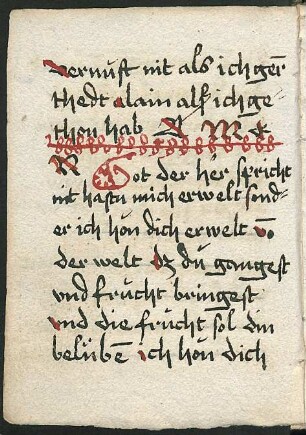 vernuft nit als ich ger̄
thedt alain als ich ge
thon hab
Got der her spricht
nit hastu mich erwelt sond-
er ich hon dich erwelt vō
der welt dz du gangest
vnd frucht bringest
vnd die frucht sol din
belübē ich hon dich